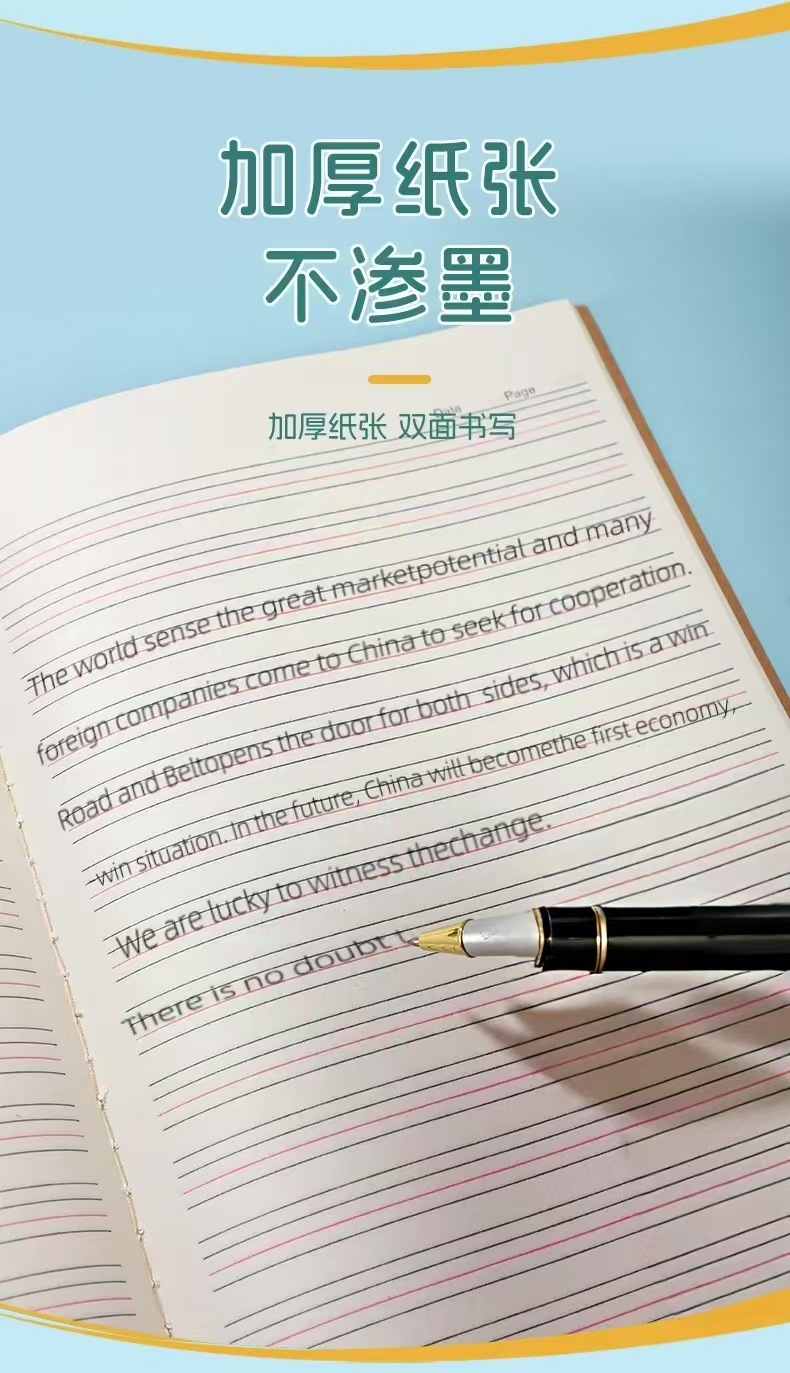 加厚纸张
不渗墨
Date
Page
加厚纸张 双面书写
The world sense the great marketpotential and many
foreign companies come to China to seek for cooperation.
Road and Beltopens the door for both sides, which is a win
-win situation. In the future, China will becomethe first economy,
We are lucky to witness thechange.
There is no doubt t